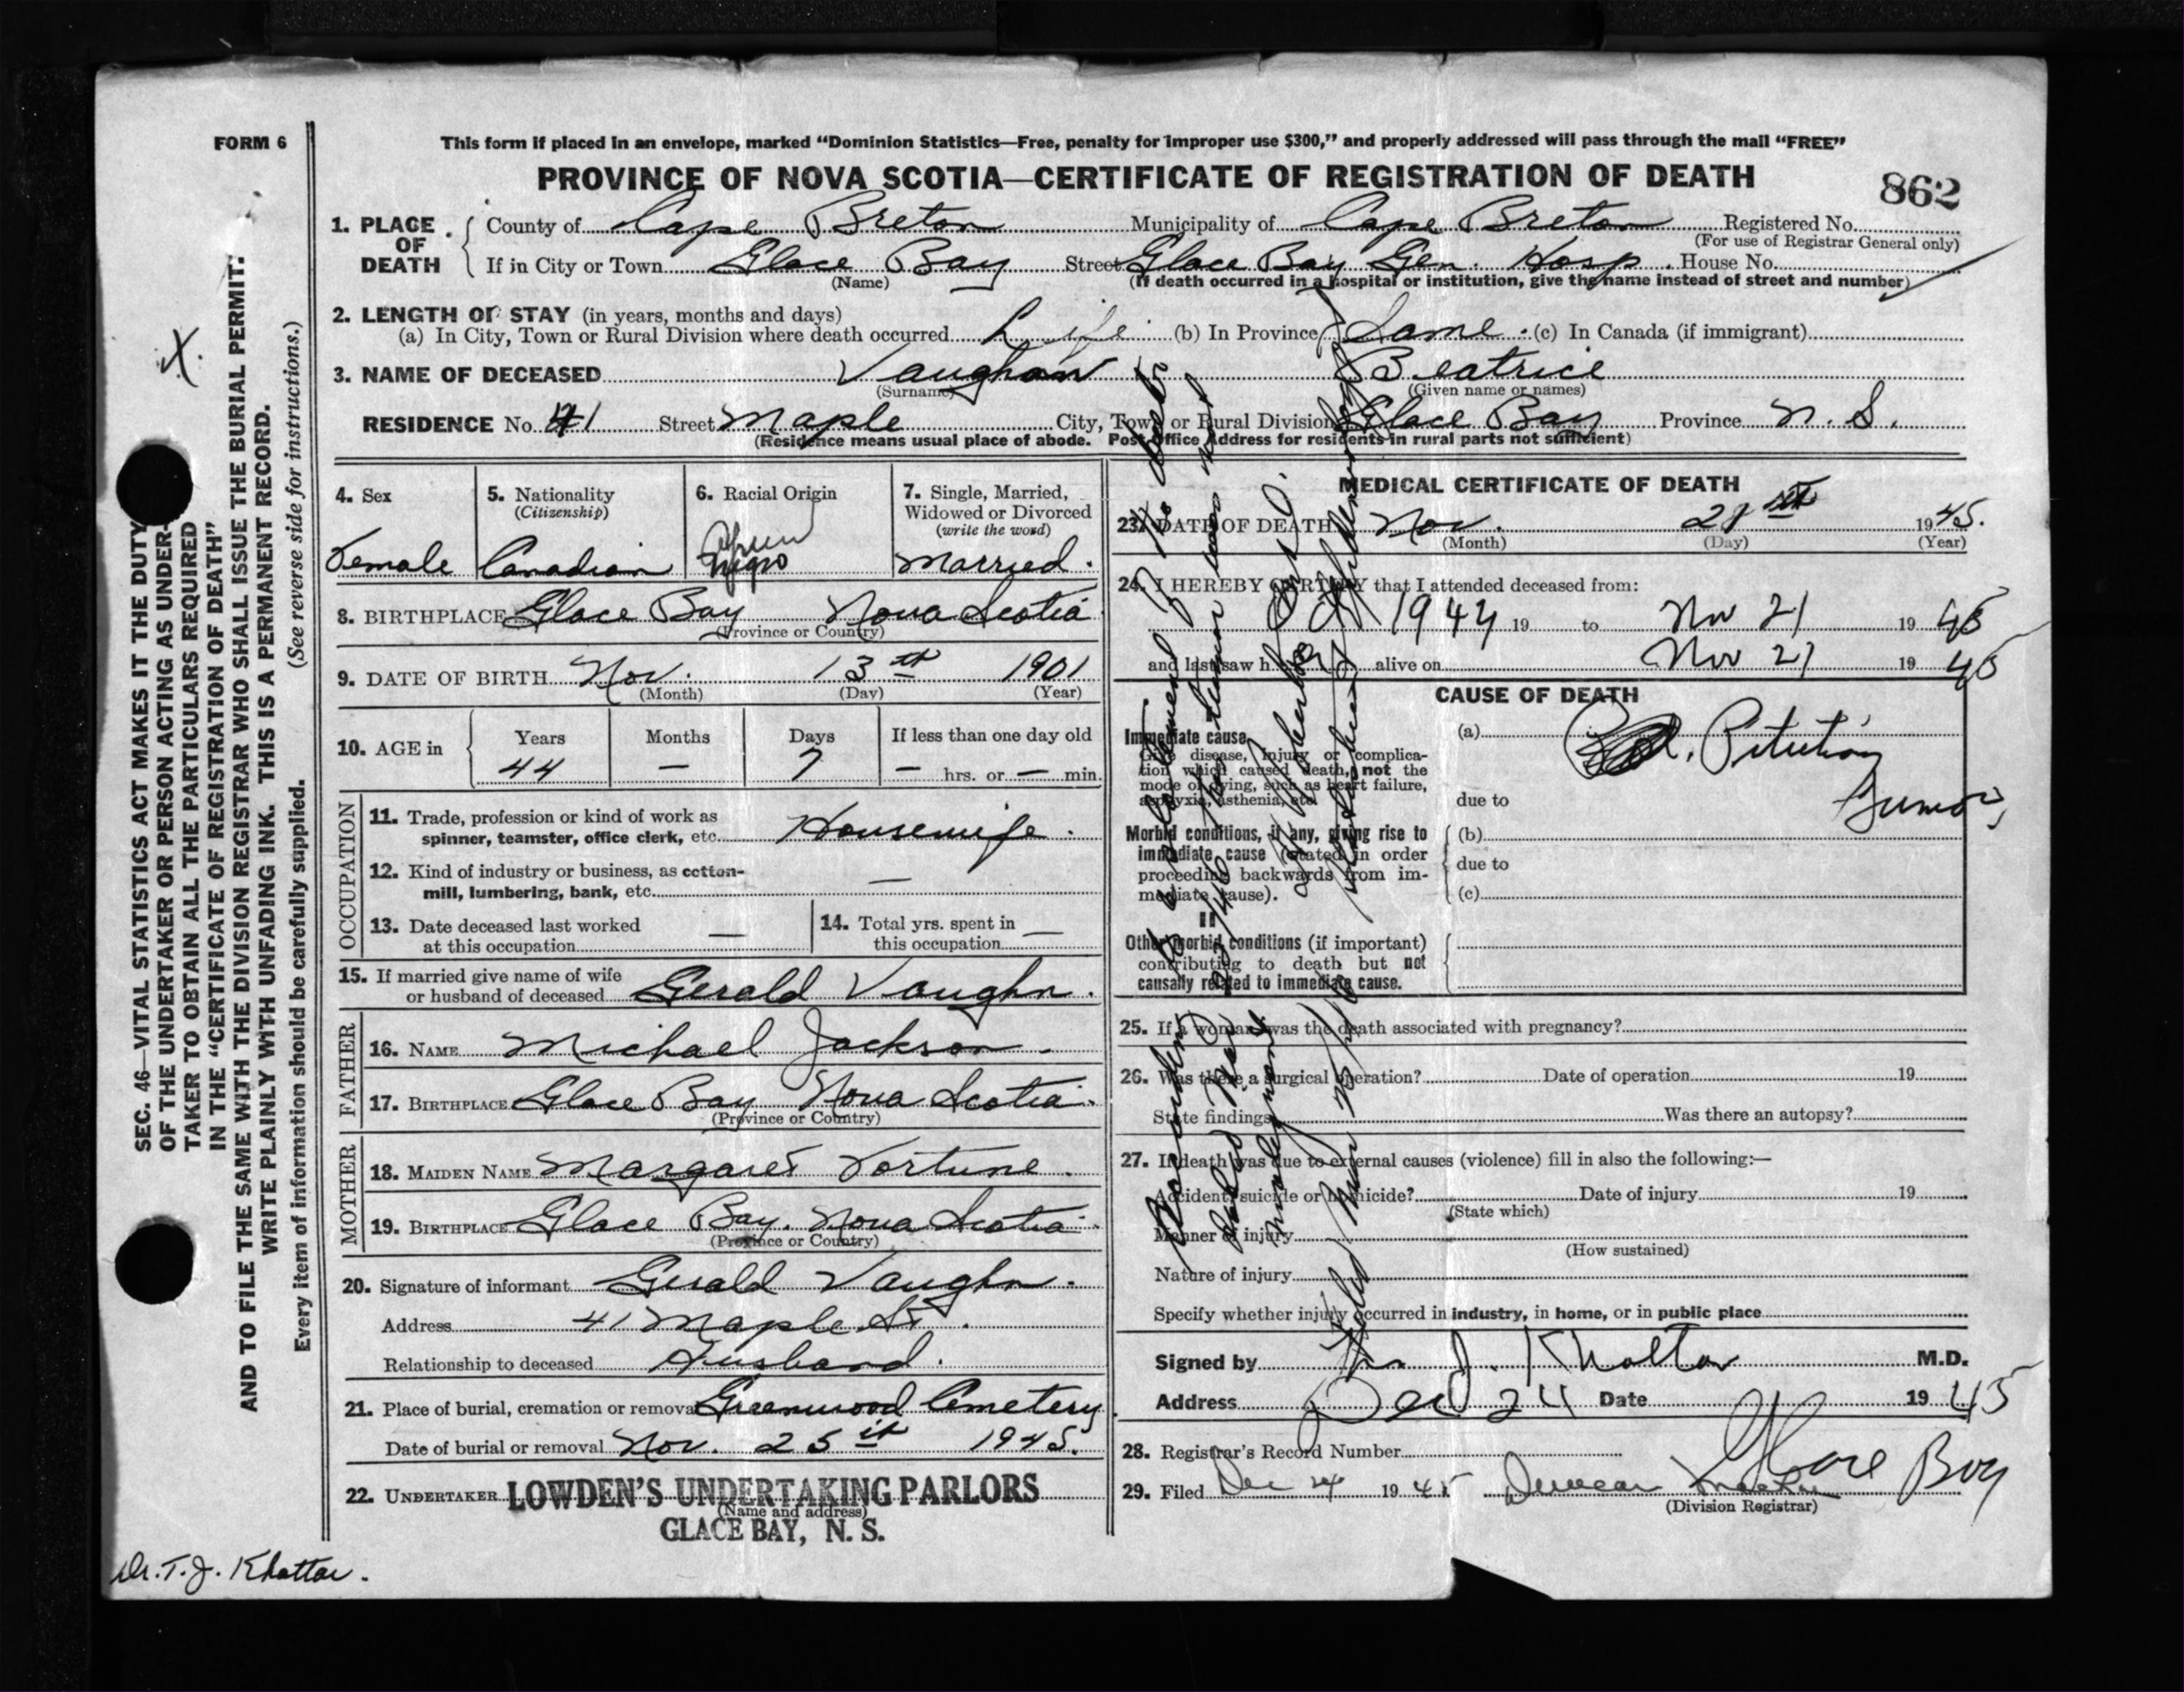 FORM 6
This form if placed in an envelope, marked “Dominion Statistics—Free, penalty for improper use $300,” and properly addressed will pass through the mail “FREE”
PROVINCE OF NOVA SCOTIA—CERTIFICATE OF REGISTRATION OF DEATH
862
1. PLACE OF DEATH County of Cape Breton Municipality of Cape Breton Registered No.
(For use of Registrar General only)
If in City or Town Glace Bay Street Glace Bay Gen. Hosp. House No.
(Name) (If death occurred in a hospital or institution, give the name instead of street and number)
2. LENGTH OF STAY (in years, months and days)
(a) In City, Town or Rural Division where death occurred Life (b) In Province Same (c) In Canada (if immigrant)
3. NAME OF DECEASED Vaughan Beatrice
(Surname) (Given name or names)
RESIDENCE No. 41 Street Maple City, Town or Rural Division Glace Bay Province N. S.
(Residence means usual place of abode. Post Office Address for residents in rural parts not sufficient)
4. Sex
Female
5. Nationality
(Citizenship)
Canadian
6. Racial Origin
Negro
7. Single, Married,
Widowed or Divorced
(write the word)
Married.
8. BIRTHPLACE Glace Bay Nova Scotia
(Province or Country)
9. DATE OF BIRTH Nov. 13th 1901
(Month) (Day) (Year)
10. AGE in Years Months Days If less than one day old
44 — 7 — hrs. or — min.
OCCUPATION
11. Trade, profession or kind of work as
spinner, teamster, office clerk, etc. Housewife.
12. Kind of industry or business, as cotton-
mill, lumbering, bank, etc. —
13. Date deceased last worked
at this occupation —
14. Total yrs. spent in
this occupation —
15. If married give name of wife
or husband of deceased Gerald Vaughn.
FATHER
16. NAME Michael Jackson.
17. BIRTHPLACE Glace Bay Nova Scotia.
(Province or Country)
MOTHER
18. MAIDEN NAME Margaret Fortune.
19. BIRTHPLACE Glace Bay. Nova Scotia.
(Province or Country)
20. Signature of informant Gerald Vaughn.
Address 41 Maple St.
Relationship to deceased Husband.
21. Place of burial, cremation or removal Greenwood Cemetery
Date of burial or removal Nov. 25th 1945.
22. UNDERTAKER LOWDEN'S UNDERTAKING PARLORS
(Name and address)
GLACE BAY, N. S.
MEDICAL CERTIFICATE OF DEATH
23. DATE OF DEATH Nov. 21st 1945.
(Month) (Day) (Year)
24. I HEREBY CERTIFY that I attended deceased from:
1944 19 to Nov 21 1945
and last saw h alive on Nov 21 1945
CAUSE OF DEATH
I
Immediate cause
Give disease, injury or complica-
tion which caused death, not the
mode of dying, such as heart failure,
asphyxia, asthenia, etc.
(a) Pituitary
Tumor
due to
Morbid conditions, if any, giving rise to
immediate cause (stated in order
proceeding backwards from im-
mediate cause).
(b)
due to
(c)
II
Other morbid conditions (if important)
contributing to death but not
causally related to immediate cause.
25. If a woman, was the death associated with pregnancy?
26. Was there a surgical operation? Date of operation 19
State findings Was there an autopsy?
27. If death was due to external causes (violence) fill in also the following:—
Accident, suicide or homicide? Date of injury 19
(State which)
Manner of injury
(How sustained)
Nature of injury
Specify whether injury occurred in industry, in home, or in public place
Signed by T. J. Khattar M.D.
Address Dec 24 Date 1945
Glace Bay
28. Registrar's Record Number
29. Filed Dec 24 1945 Duncan
(Division Registrar)
SEC. 46—VITAL STATISTICS ACT MAKES IT THE DUTY
OF THE UNDERTAKER OR PERSON ACTING AS UNDER-
TAKER TO OBTAIN ALL THE PARTICULARS REQUIRED
IN THE “CERTIFICATE OF REGISTRATION OF DEATH”
AND TO FILE THE SAME WITH THE DIVISION REGISTRAR WHO SHALL ISSUE THE BURIAL PERMIT.
WRITE PLAINLY WITH UNFADING INK. THIS IS A PERMANENT RECORD.
Every item of information should be carefully supplied. (See reverse side for instructions.)
X.
Dr. T. J. Khattar.